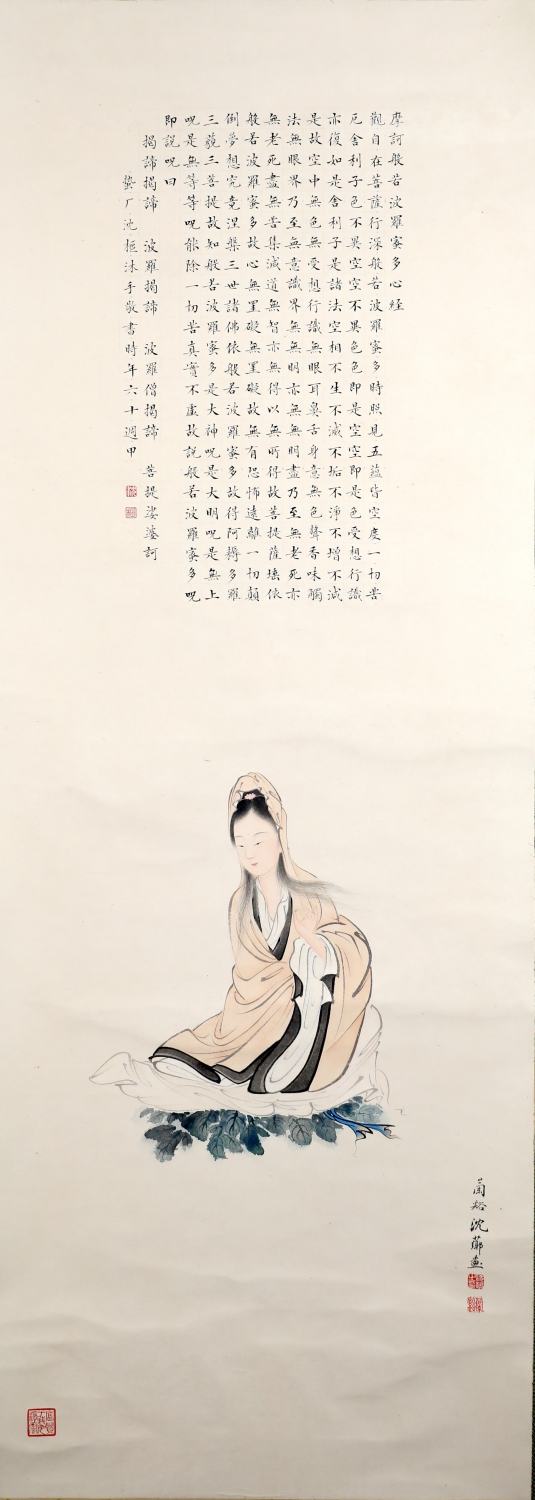 摩訶般若波羅蜜多心経
觀自在菩薩行深般若波羅蜜多時照見五蘊皆空度一切苦
厄舍利子色不異空空不異色色即是空空即是色受想行識
亦復如是舍利子是諸法空相不生不滅不垢不淨不增不減
是故空中無色無受想行識無眼耳鼻舌身意無色聲香味觸
法無眼界乃至無意識界無無明亦無無明盡乃至無老死亦
無老死盡無苦集滅道無智亦無得以無所得故菩提薩埵依
般若波羅蜜多故心無罣礙無罣礙故無有恐怖遠離一切顛
倒夢想究竟涅槃三世諸佛依般若波羅蜜多故得阿耨多羅
三藐三菩提故知般若波羅蜜多是大神呪是大明呪是無上
呪是無等等呪能除一切苦真實不虛故説般若波羅蜜多呪
即説呪曰
揭諦揭諦 波羅揭諦 波羅僧揭諦 菩提娑婆訶
厂沈沐手敬書時年六十週甲
蘭谿沈畫